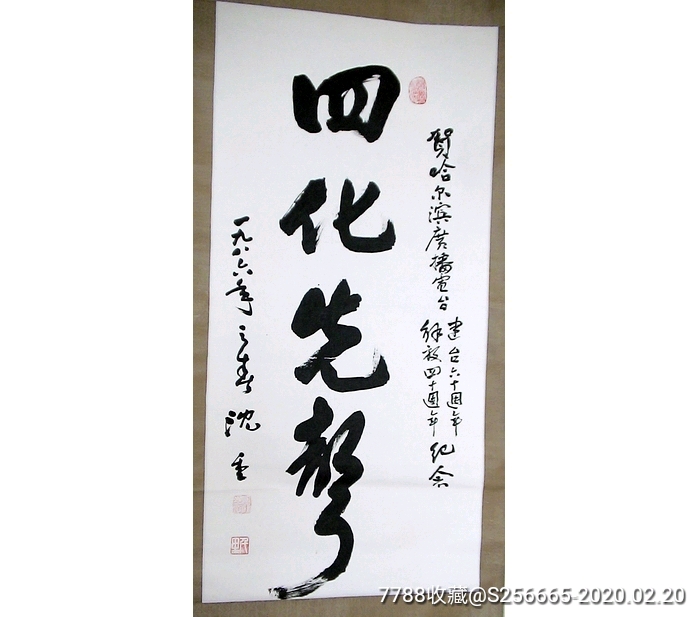 四化先聲
賀哈尔滨廣播電台
建台六十週年
解放四十週年
纪念
一九八六年之春 沈重
7788收藏@S256665-2020.02.20